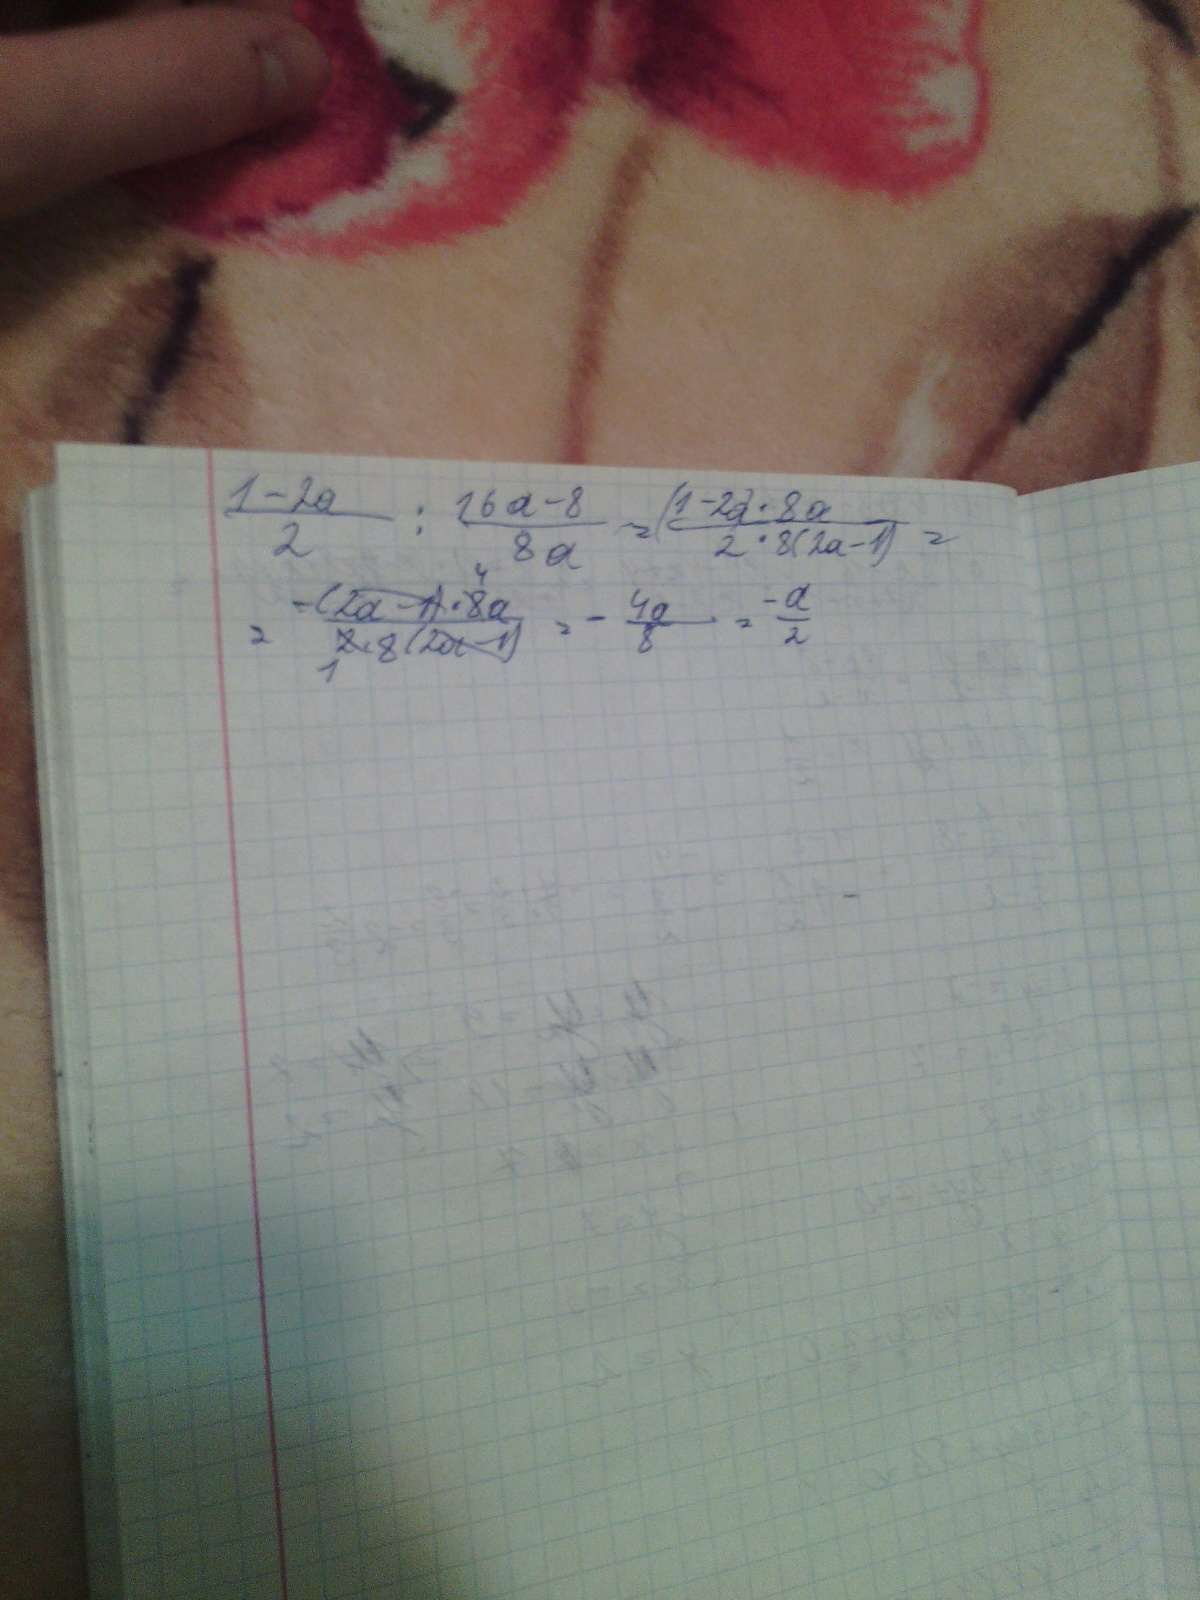 (1-2a)/2 : (16a-8)/8a = ((1-2a)·8a)/(2·8(2a-1)) =
= (-(2a-1)·8a)/(2·8(2a-1)) = -4a/8 = -a/2